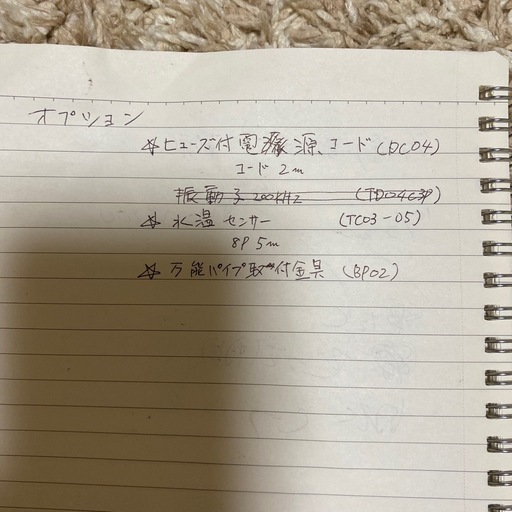 オプション
☆ヒューズ付電源コード(DC04)
コード2m
振動子200KHz (TD04C3P)
☆水温センサー (TC03-05)
8P 5m
☆万能パイプ取付金具(BP02)